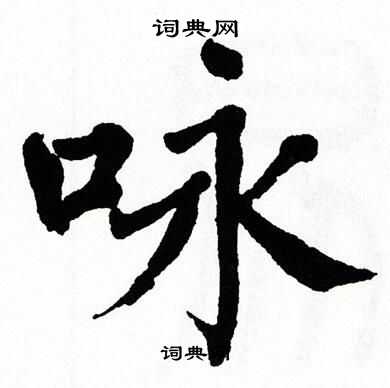 词典网
咏
词典网